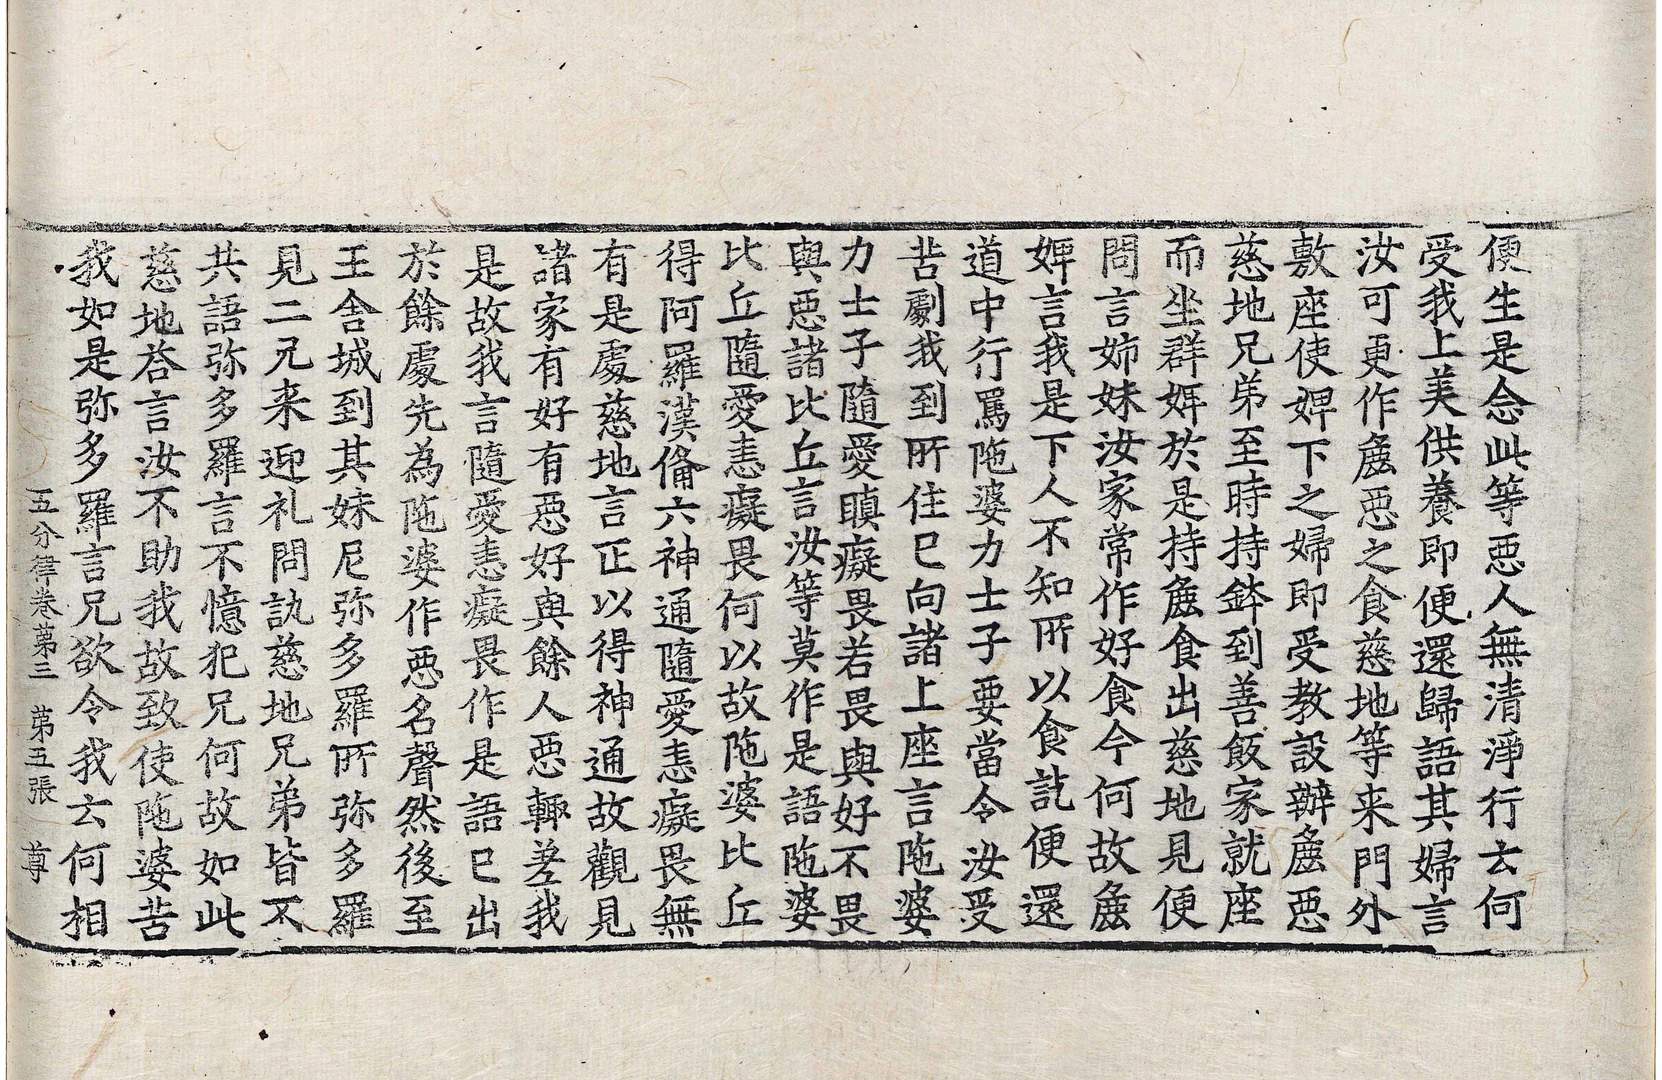 便生是念此等惡人無清淨行云何
受我上美供養即便還歸語其婦言
汝可更作麁惡之食慈地等来門外
敷座使婢下之婦即受教設辦麁惡
慈地兄弟至時持鉢到善飯家就座
而坐群婢於是持麁食出慈地見便
問言姊妹汝家常作好食今何故麁
婢言我是下人不知所以食訖便還
道中行罵陁婆力士子要當令汝受
苦劇我到所住已向諸上座言陁婆
力士子隨愛瞋癡畏若畏與好不畏
與惡諸比丘言汝等莫作是語陁婆
比丘隨愛恚癡畏何以故陁婆比丘
得阿羅漢脩六神通隨愛恚癡畏無
有是處慈地言正以得神通故觀見
諸家有好有惡好與餘人惡輙差我
是故我言隨愛恚癡畏作是語已出
於餘處先為陁婆作惡名聲然後至
王舍城到其妹尼弥多羅所弥多羅
見二兄来迎礼問訊慈地兄弟皆不
共語弥多羅言不憶犯兄何故如此
慈地荅言汝不助我故致使陁婆苦
我如是弥多羅言兄欲令我云何相
五分律卷第三　第五張　尊